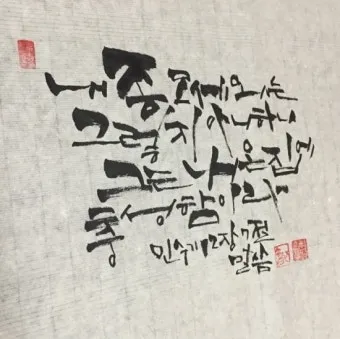 내 종 모세와는
그렇지 아니하니
그는 나의 온 집에
충성함이라
민수기 12장 7절
말씀